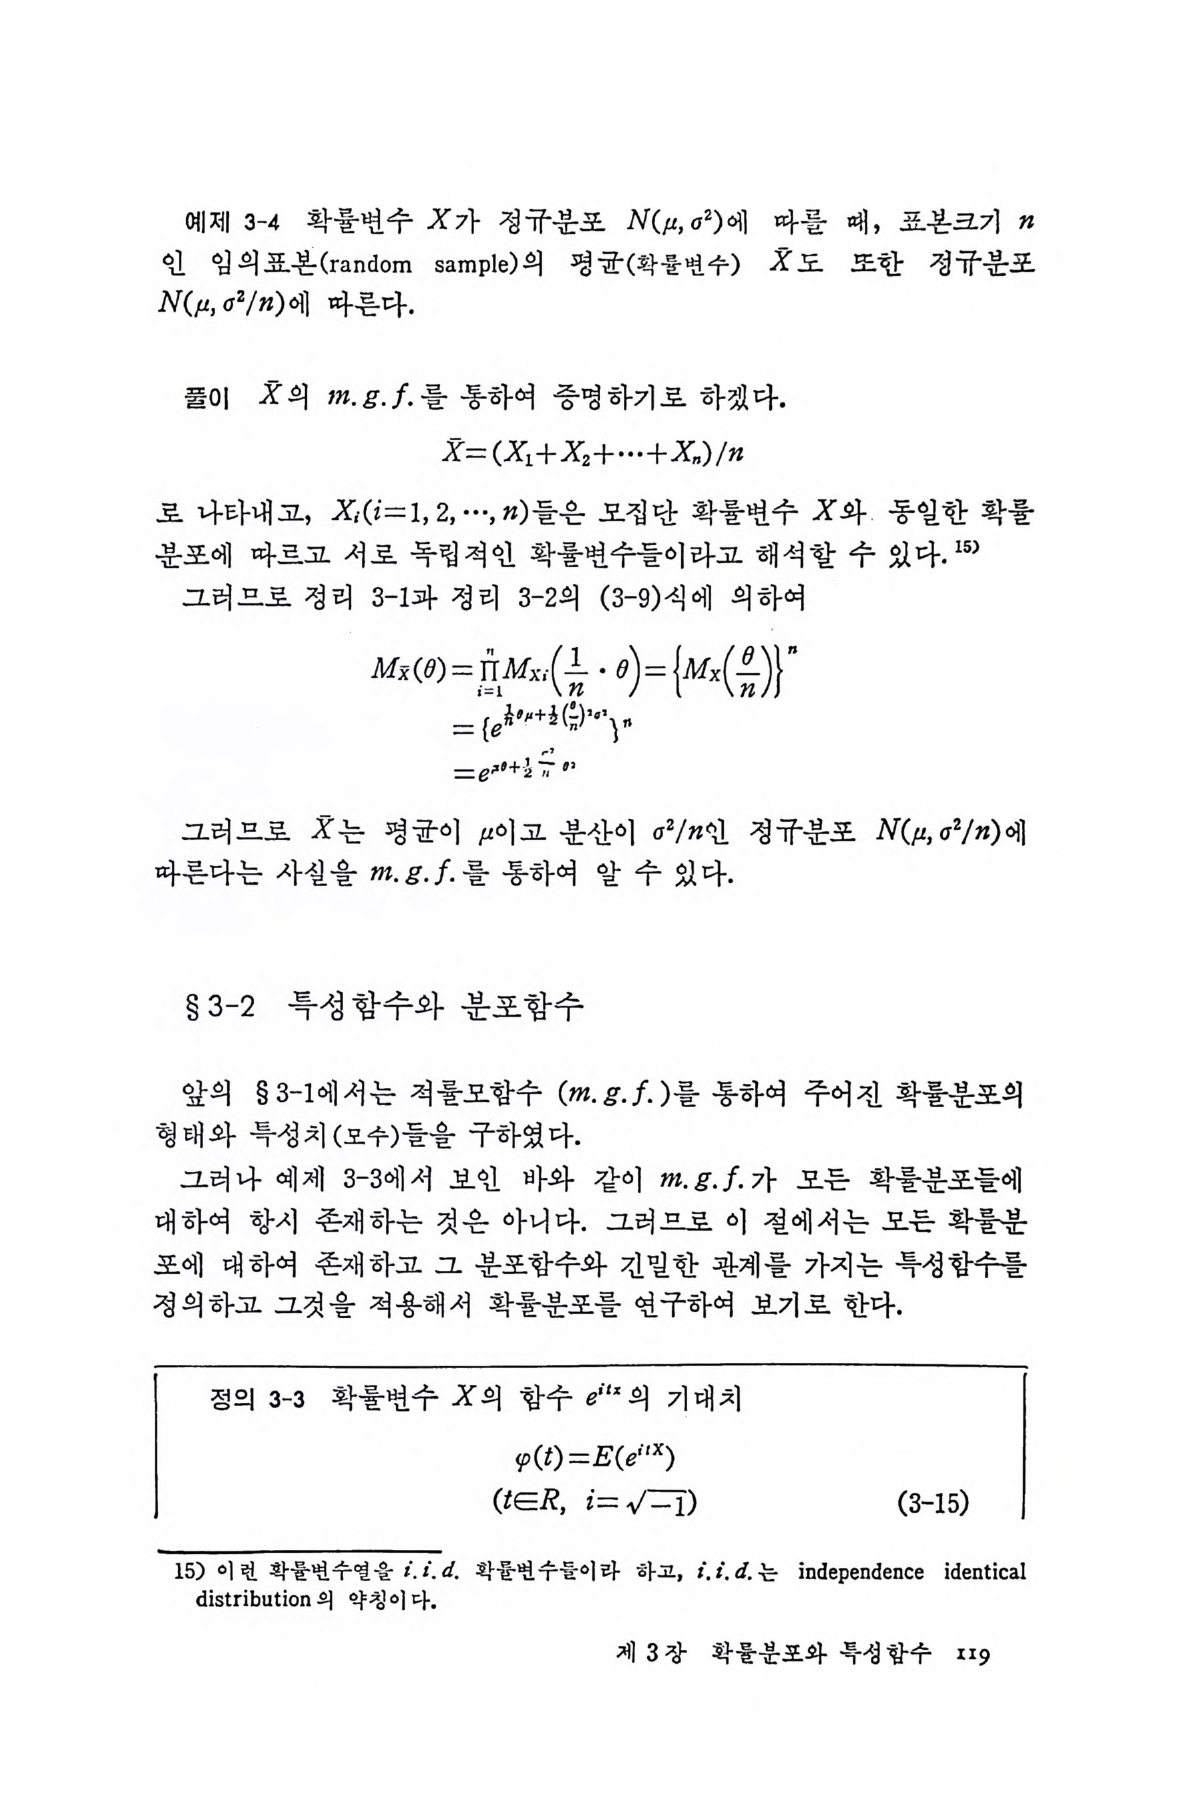 예제 3-4 확률변수 X가 정규분포 N(μ, σ²)에 따를 때, 표본크기 n
인 임의표본(random sample)의 평균(확률변수) X̄도 또한 정규분포
N(μ, σ²/n)에 따른다.
풀이 X̄의 m. g. f.를 통하여 증명하기로 하겠다.
X̄=(X₁+X₂+⋯+Xₙ)/n
로 나타내고, Xᵢ(i=1, 2, ⋯, n)들은 모집단 확률변수 X와 동일한 확률
분포에 따르고 서로 독립적인 확률변수들이라고 해석할 수 있다.¹⁵⁾
그러므로 정리 3-1과 정리 3-2의 (3-9)식에 의하여
M_X̄(θ)=∏_{i=1}^{n} M_{Xᵢ}(1/n · θ)={M_X(θ/n)}ⁿ
={e^{1/n θμ+1/2(θ/n)²σ²}}ⁿ
=e^{μθ+1/2 σ²/n θ²}
그러므로 X̄는 평균이 μ이고 분산이 σ²/n인 정규분포 N(μ, σ²/n)에
따른다는 사실을 m. g. f.를 통하여 알 수 있다.
§ 3-2 특성함수와 분포함수
앞의 § 3-1에서는 적률모함수 (m. g. f.)를 통하여 주어진 확률분포의
형태와 특성치(모수)들을 구하였다.
그러나 예제 3-3에서 보인 바와 같이 m. g. f.가 모든 확률분포들에
대하여 항시 존재하는 것은 아니다. 그러므로 이 절에서는 모든 확률분
포에 대하여 존재하고 그 분포함수와 긴밀한 관계를 가지는 특성함수를
정의하고 그것을 적용해서 확률분포를 연구하여 보기로 한다.
정의 3-3 확률변수 X의 함수 e^{itx}의 기대치
φ(t)=E(e^{itX})
(t∈R, i=√−1) (3-15)
15) 이런 확률변수열을 i. i. d. 확률변수들이라 하고, i. i. d.는 independence identical
distribution의 약칭이다.
제 3 장 확률분포와 특성함수 119